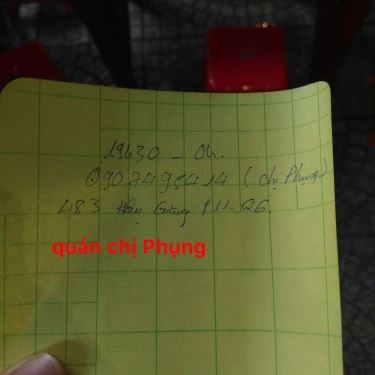 19h30 - 0h.
0907495414 (chị Phụng)
483 Hậu Giang P11-Q6.
quán chị Phụng